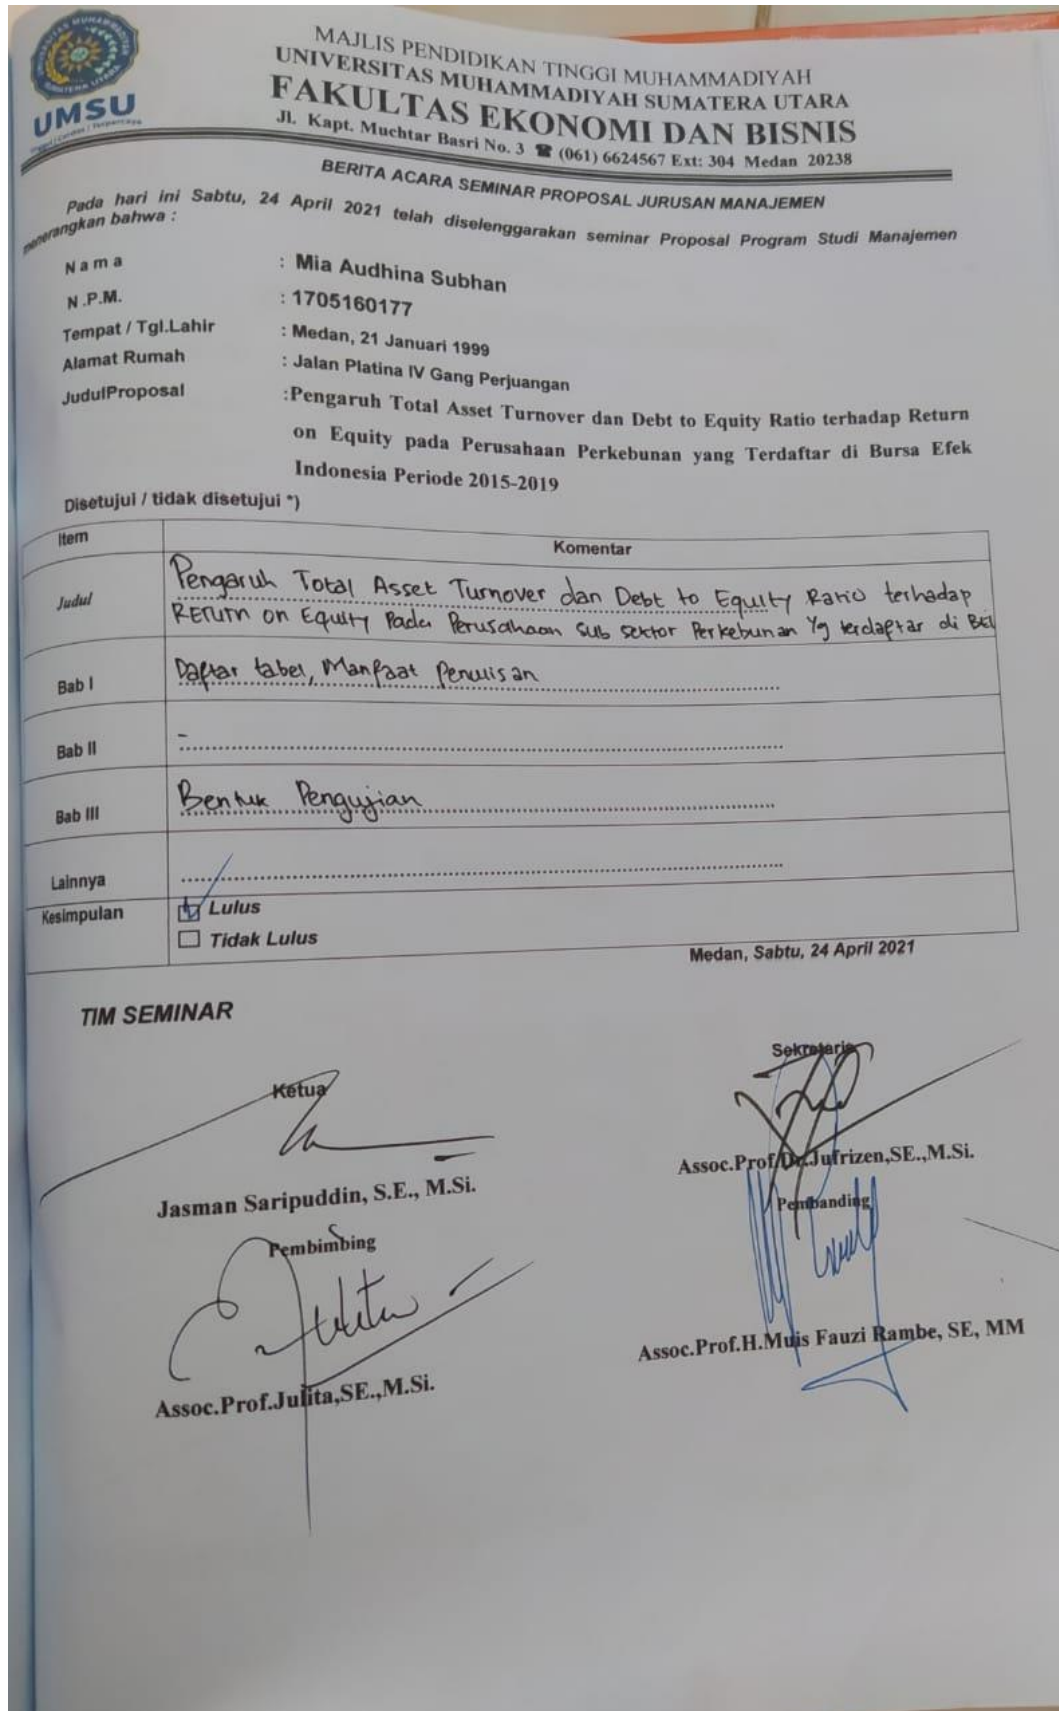 UNIVERSITAS MUHAMMADIYAH
SUMATERA UTARA
UMSU
Unggul | Cerdas | Terpercaya
MAJLIS PENDIDIKAN TINGGI MUHAMMADIYAH
UNIVERSITAS MUHAMMADIYAH SUMATERA UTARA
FAKULTAS EKONOMI DAN BISNIS
Jl. Kapt. Muchtar Basri No. 3 ☎ (061) 6624567 Ext: 304 Medan 20238
BERITA ACARA SEMINAR PROPOSAL JURUSAN MANAJEMEN
Pada hari ini Sabtu, 24 April 2021 telah diselenggarakan seminar Proposal Program Studi Manajemen
menerangkan bahwa :
N a m a : Mia Audhina Subhan
N .P.M. : 1705160177
Tempat / Tgl.Lahir : Medan, 21 Januari 1999
Alamat Rumah : Jalan Platina IV Gang Perjuangan
JudulProposal :Pengaruh Total Asset Turnover dan Debt to Equity Ratio terhadap Return
on Equity pada Perusahaan Perkebunan yang Terdaftar di Bursa Efek
Indonesia Periode 2015-2019
Disetujui / tidak disetujui *)
Item Komentar
Judul Pengaruh Total Asset Turnover dan Debt to Equity Ratio terhadap
Return on Equity Pada Perusahaan Sub sektor Perkebunan Yg terdaftar di BEI
Bab I Daftar tabel, Manfaat Penulisan
Bab II -
Bab III Bentuk Pengujian
Lainnya
Kesimpulan Lulus
Tidak Lulus
Medan, Sabtu, 24 April 2021
TIM SEMINAR
Ketua Sekretaris
Jasman Saripuddin, S.E., M.Si. Assoc.Prof.Dr.Jufrizen,SE.,M.Si.
Pembimbing Pembanding
Assoc.Prof.Julita,SE.,M.Si. Assoc.Prof.H.Muis Fauzi Rambe, SE, MM